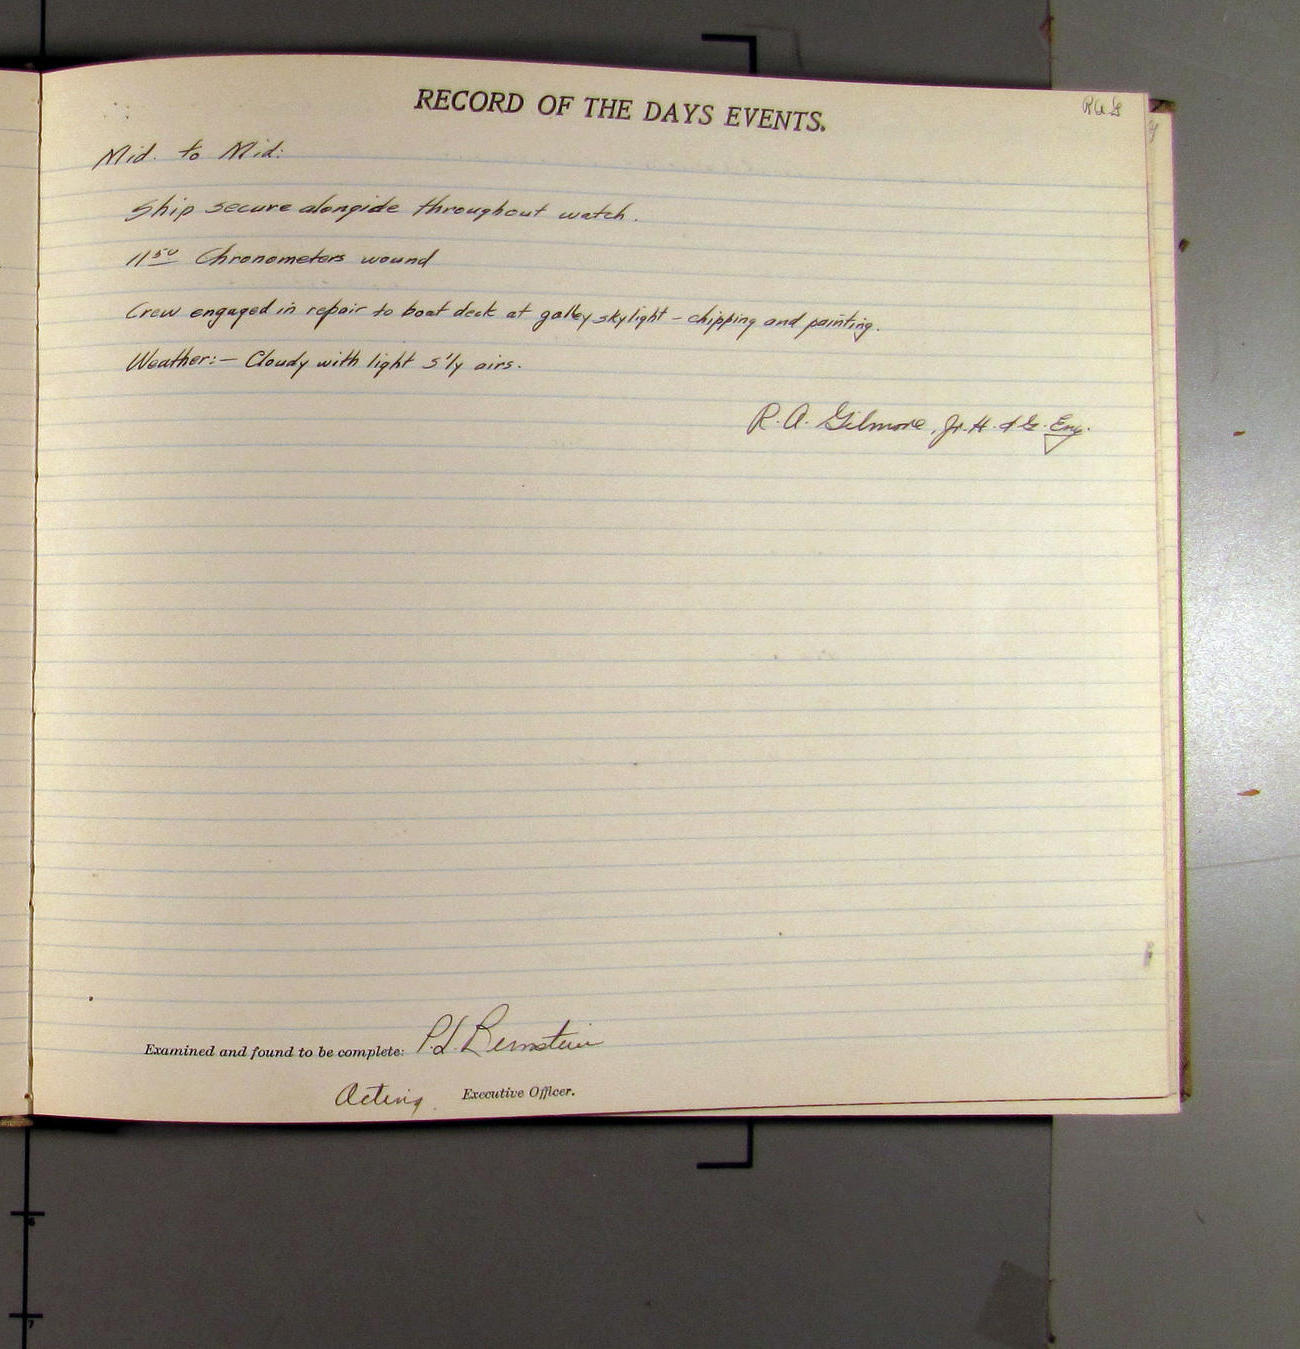 RAG
RECORD OF THE DAYS EVENTS.
Mid. to Mid:
Ship secure alongide throughout watch.
11 50 Chronometers wound
Crew engaged in repair to boat deck at galley skylight - chipping and painting.
Weather:- Cloudy with light S'ly airs.
R. A. Gilmore, Jr. H. & G. Eng.
Examined and found to be complete: P. L. Bernstein
Acting Executive Officer.
6
7